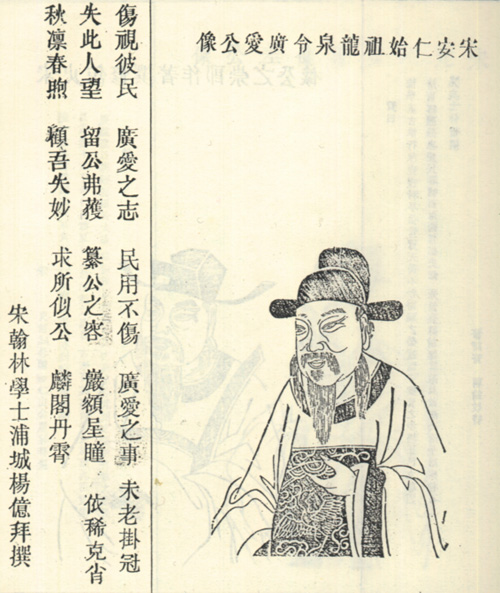 宋安仁始祖龍泉令廣愛公像
傷視彼民 廣愛之志 民用不傷 廣愛之事 未老掛冠
失此人望 留公弗穫 纂公之容 嚴額星瞳 依稀克肖
秋凛春煦 顧吾失妙 求所似公 麟閣丹霄
宋翰林學士浦城楊億拜撰